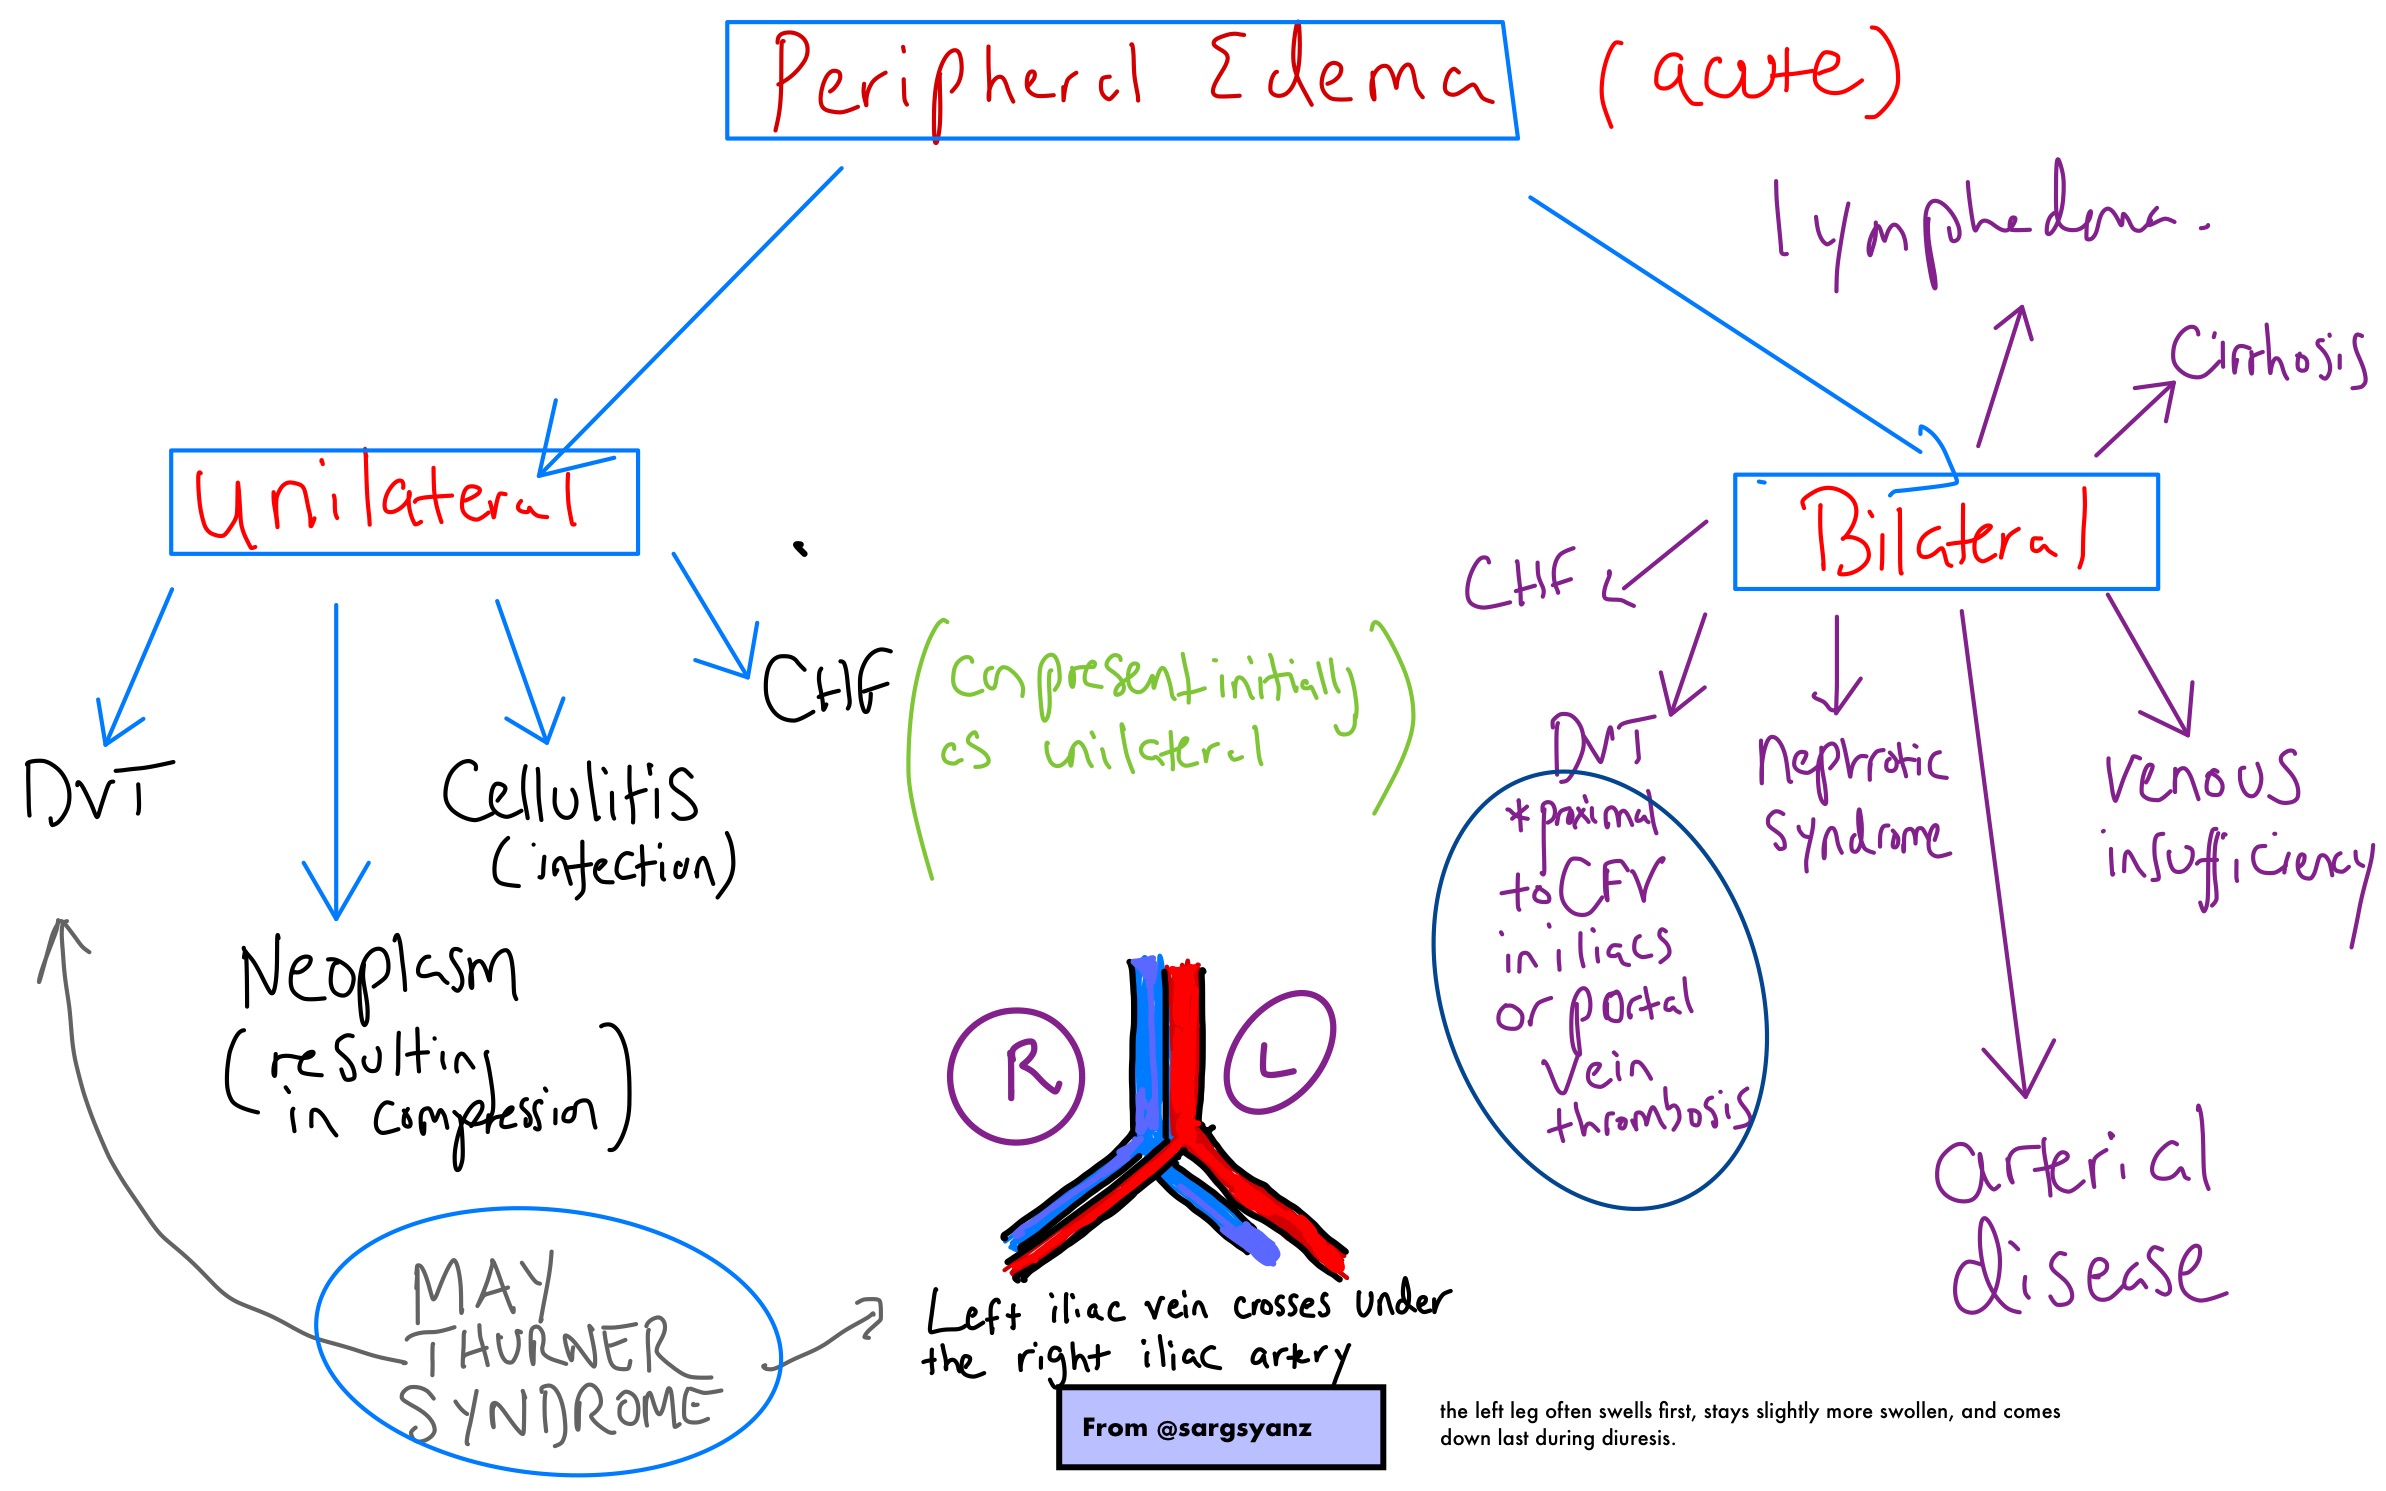 Peripheral Edema (acute)
lymphedema.
Cirrhosis
Unilateral
Bilateral
DVT
Neoplasm
(resulting
in compression)
Cellulitis
(infection)
CHF
(can present initially
as unilateral)
CHF
DVT
*proximal
to CFV
in iliacs
or portal
vein
thrombosis
nephrotic
syndrome
venous
insufficiency
arterial
disease
R
L
MAY
THURNER
SYNDROME
Left iliac vein crosses under
the right iliac artery
From @sargsyanz
the left leg often swells first, stays slightly more swollen, and comes
down last during diuresis.